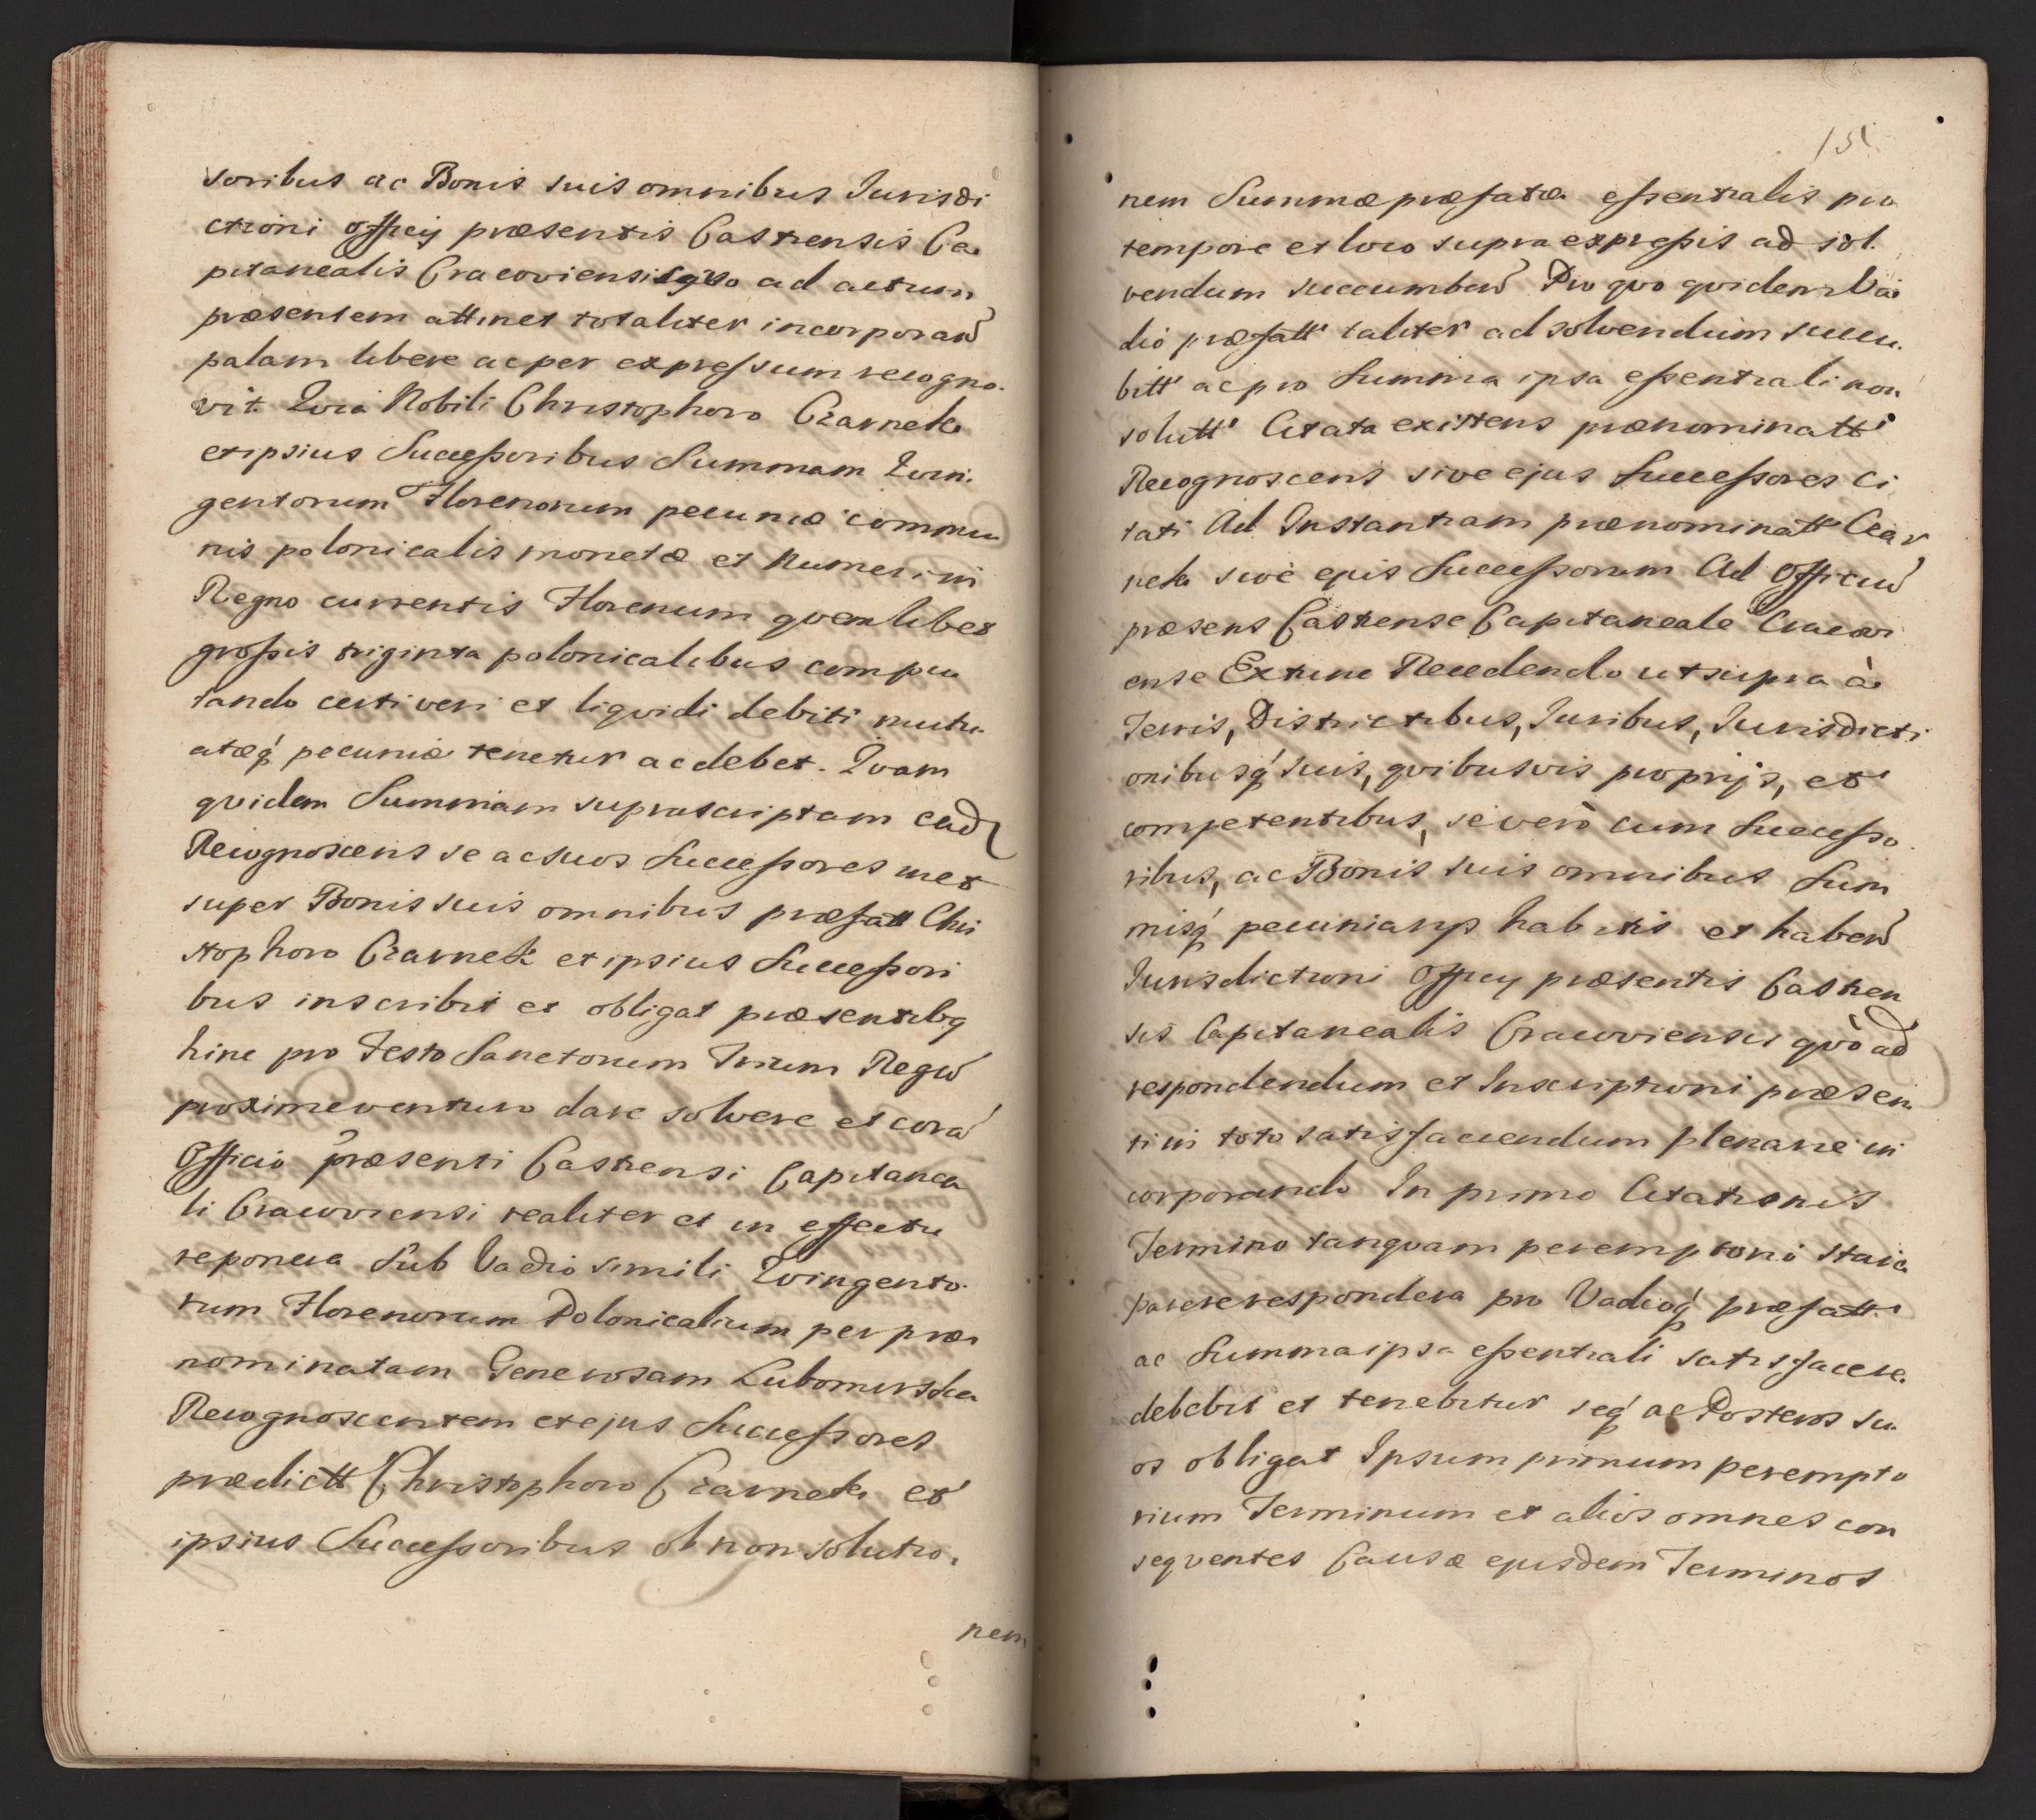 soribus ac Bonis suis omnibus Jurisdi
ctioni Officij præsentis Castrensis Ca
pitanealis Cracoviensis qvo ad actum
præsentem attinet totaliter incorporañ
palam libere ac per expressum recogno
vit. Qvia Nobili Christophoro Czarnek
et ipsius Successoribus Summam Qvin
gentorum Florenorum pecuniæ commu
nis polonicalis monetæ et numeri in
Regno currentis Florenum qvemlibet
grossis triginta polonicalibus compu
tando certi veri et liqvidi debiti mutu
atæq́ pecuniæ tenetur ac debet. Qvam
qvidem Summam suprascriptam ead
Recognoscens se ac suos Successores met
super Bonis suis omnibus præfatt Chri
stophoro Czarnek et ipsius Successori
bus inscribit et obligat præsentibq
hinc pro Festo Sanctorum Trium Regū
proxime venturo dare solvere et corā
Officio præsenti Castrensi Capitanea
li Cracoviensi realiter et in effectu
reponere Sub Vadio simili Qvingento
rum Florenorum Polonicalium per præ
nominatam Generosam Lubomirska
Recognoscentem et ejus Successores
prædictt Christophoro Czarnek et
ipsius Successoribus ob non solutio
nem
151
nem Summæ præfatæ essentialis pro
tempore et loco supra expressis ad sol
vendum succumbeñ Pro qvo qvidem Va
dio præfatt taliter ad solvendum succu
bitt ac pro Summa ipsa essentiali non
solutt Citata existens prænominatt
Recognoscens sive ejus Successores Ci
tati Ad Instantiam prænominatt Czar
nek sive ejus Successorum Ad Officiū
præsens Castrense Capitaneale Cracovi
ense Extunc Recedendo ut supra à
Terris, Districtibus, Juribus, Jurisdicti
onibusq́ suis, qvibusvis proprijs, et
competentibus, se verò cum Successo
ribus, ac Bonis suis omnibus Sum
misq́ pecuniarụ habitis et habeñ
Jurisdictioni Officij præsentis Castren
sis Capitanealis Cracoviensis qvò ad
respondendum et Inscriptioni præsen
ti in toto satisfaciendum plenarie in
corporando In primo Citationis
Termino tanqvam peremptorio stare
parere respondere pro Vadioq́ præfatt
ac Summa ipsa essentiali satisfacere
debebit et tenebitur seq́ ac Posteros su
os obligat Ipsum primum perempto
rium Terminum et alios omnes con
seqventes Causæ ejusdem Terminos